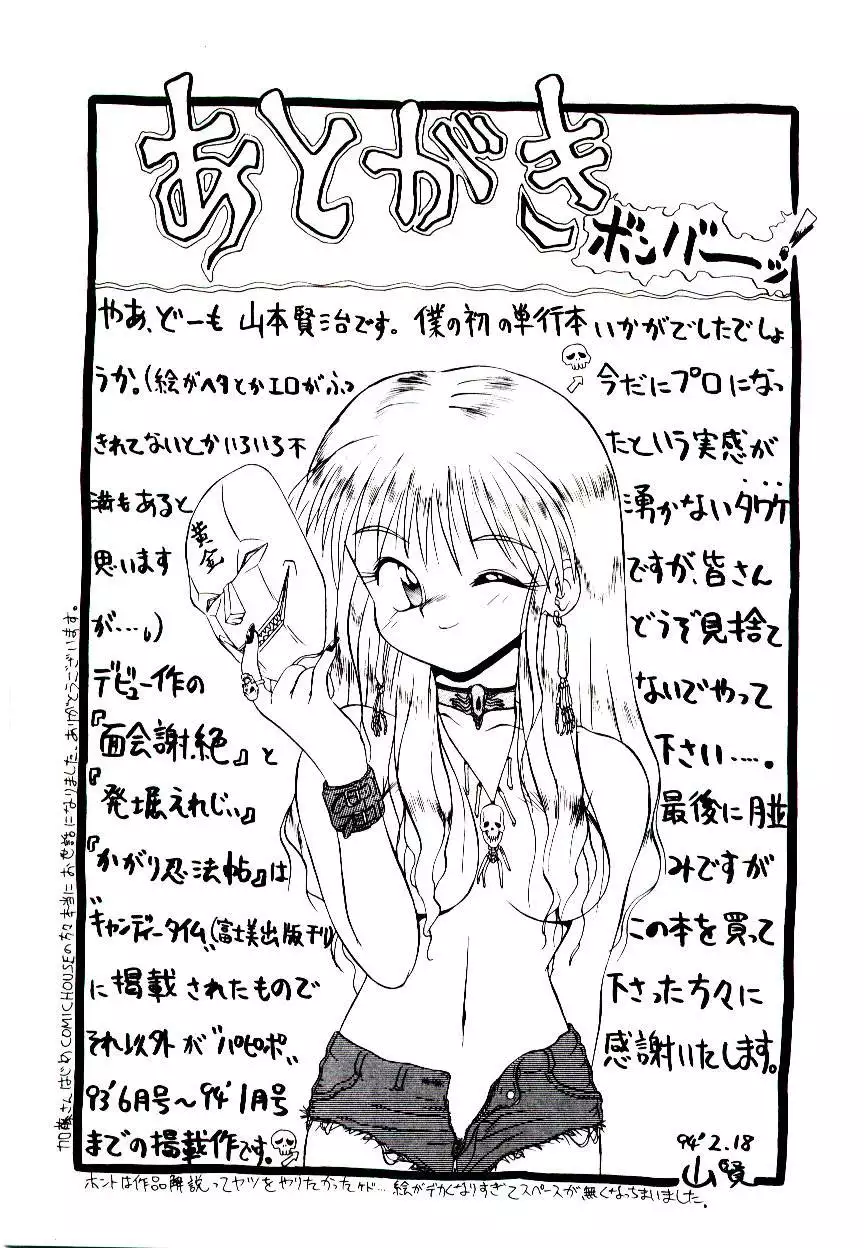 あとがき
ボンバーッ!
やあ、どーも 山本賢治です。僕の初の単行本いかがでしたでしょ
うか。(絵がヘタとかエロがふっ
きれてないとかいろいろ不
満もあると
思います
が…。)
デビュー作の
『面会謝絶』と
『発掘えれじぃ』
『かがり忍法帖』は
"キャンディータイム"(富士美出版刊)
に掲載されたもので
それ以外が"パピポ"
93'6月号〜94'1月号
までの掲載作です。
今だにプロになっ
たという実感が
湧かないタワケ
ですが、皆さん
どうぞ見捨て
ないでやって
下さい…。
最後に月並
みですが
この本を買って
下さった方々に
感謝いたします。
94'2.18
山賢
黄金
加藤さんはじめCOMIC HOUSEの方々本当にお世話になりました、ありがとうございます。
ホントは作品解説ってヤツをやりたかったケド…絵がデカくなりすぎてスペースが無くなっちまいました。